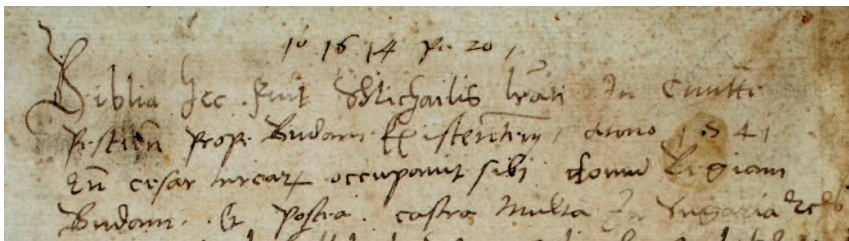 10 16 14 po 20,
Biblia hec fuit Michailis lrati In Civitte
Pestien prope Budam Existentem, anno 1541
Qn cesar turcarum occupavit sibi domum Regiam
Budam. Et postea castra multa In Vngaria &c